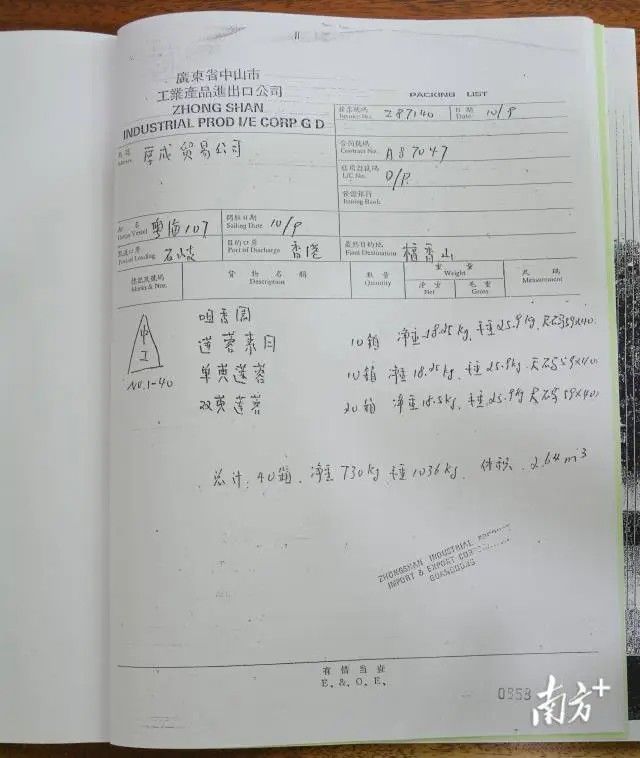 廣東省中山市
工業產品進出口公司
ZHONG SHAN
INDUSTRIAL PROD I/E CORP G D
PACKING LIST
發票號碼 Invoice No. Z87140 日期 Date 10/9
厚成贸易公司
合約號碼 Contract No. A87047
信用證號碼 L/C No. D/P.
發證銀行 Issuing Bank
船名 Vessel 粤海107 開航日期 Sailing Date 10/9
裝運口岸 Port of Loading 石岐 目的口岸 Port of Discharge 香港 最終目的地 Final Destination 檀香山
標記及號碼 Marks & Nos. 貨物名稱 Description 數量 Quantity 重量 Weight 淨重 Net 毛重 Gross 尺碼 Measurement
中
工
NO.1-40
咀香园
莲蓉素月 10箱 净重18.25kg, 毛重25.9kg, 尺码59×40
单黄莲蓉 10箱 净重18.25kg, 毛重25.9kg, 尺码59×40
双黄莲蓉 20箱 净重18.5kg, 毛重25.9kg 尺码59×40
总计: 40箱, 净重730kg 毛重1036kg, 体积 2.64m³
ZHONGSHAN INDUSTRIAL PRODUCTS
IMPORT & EXPORT CORPORATION
GUANGDONG
有錯當查
E. & O. E.
南方+